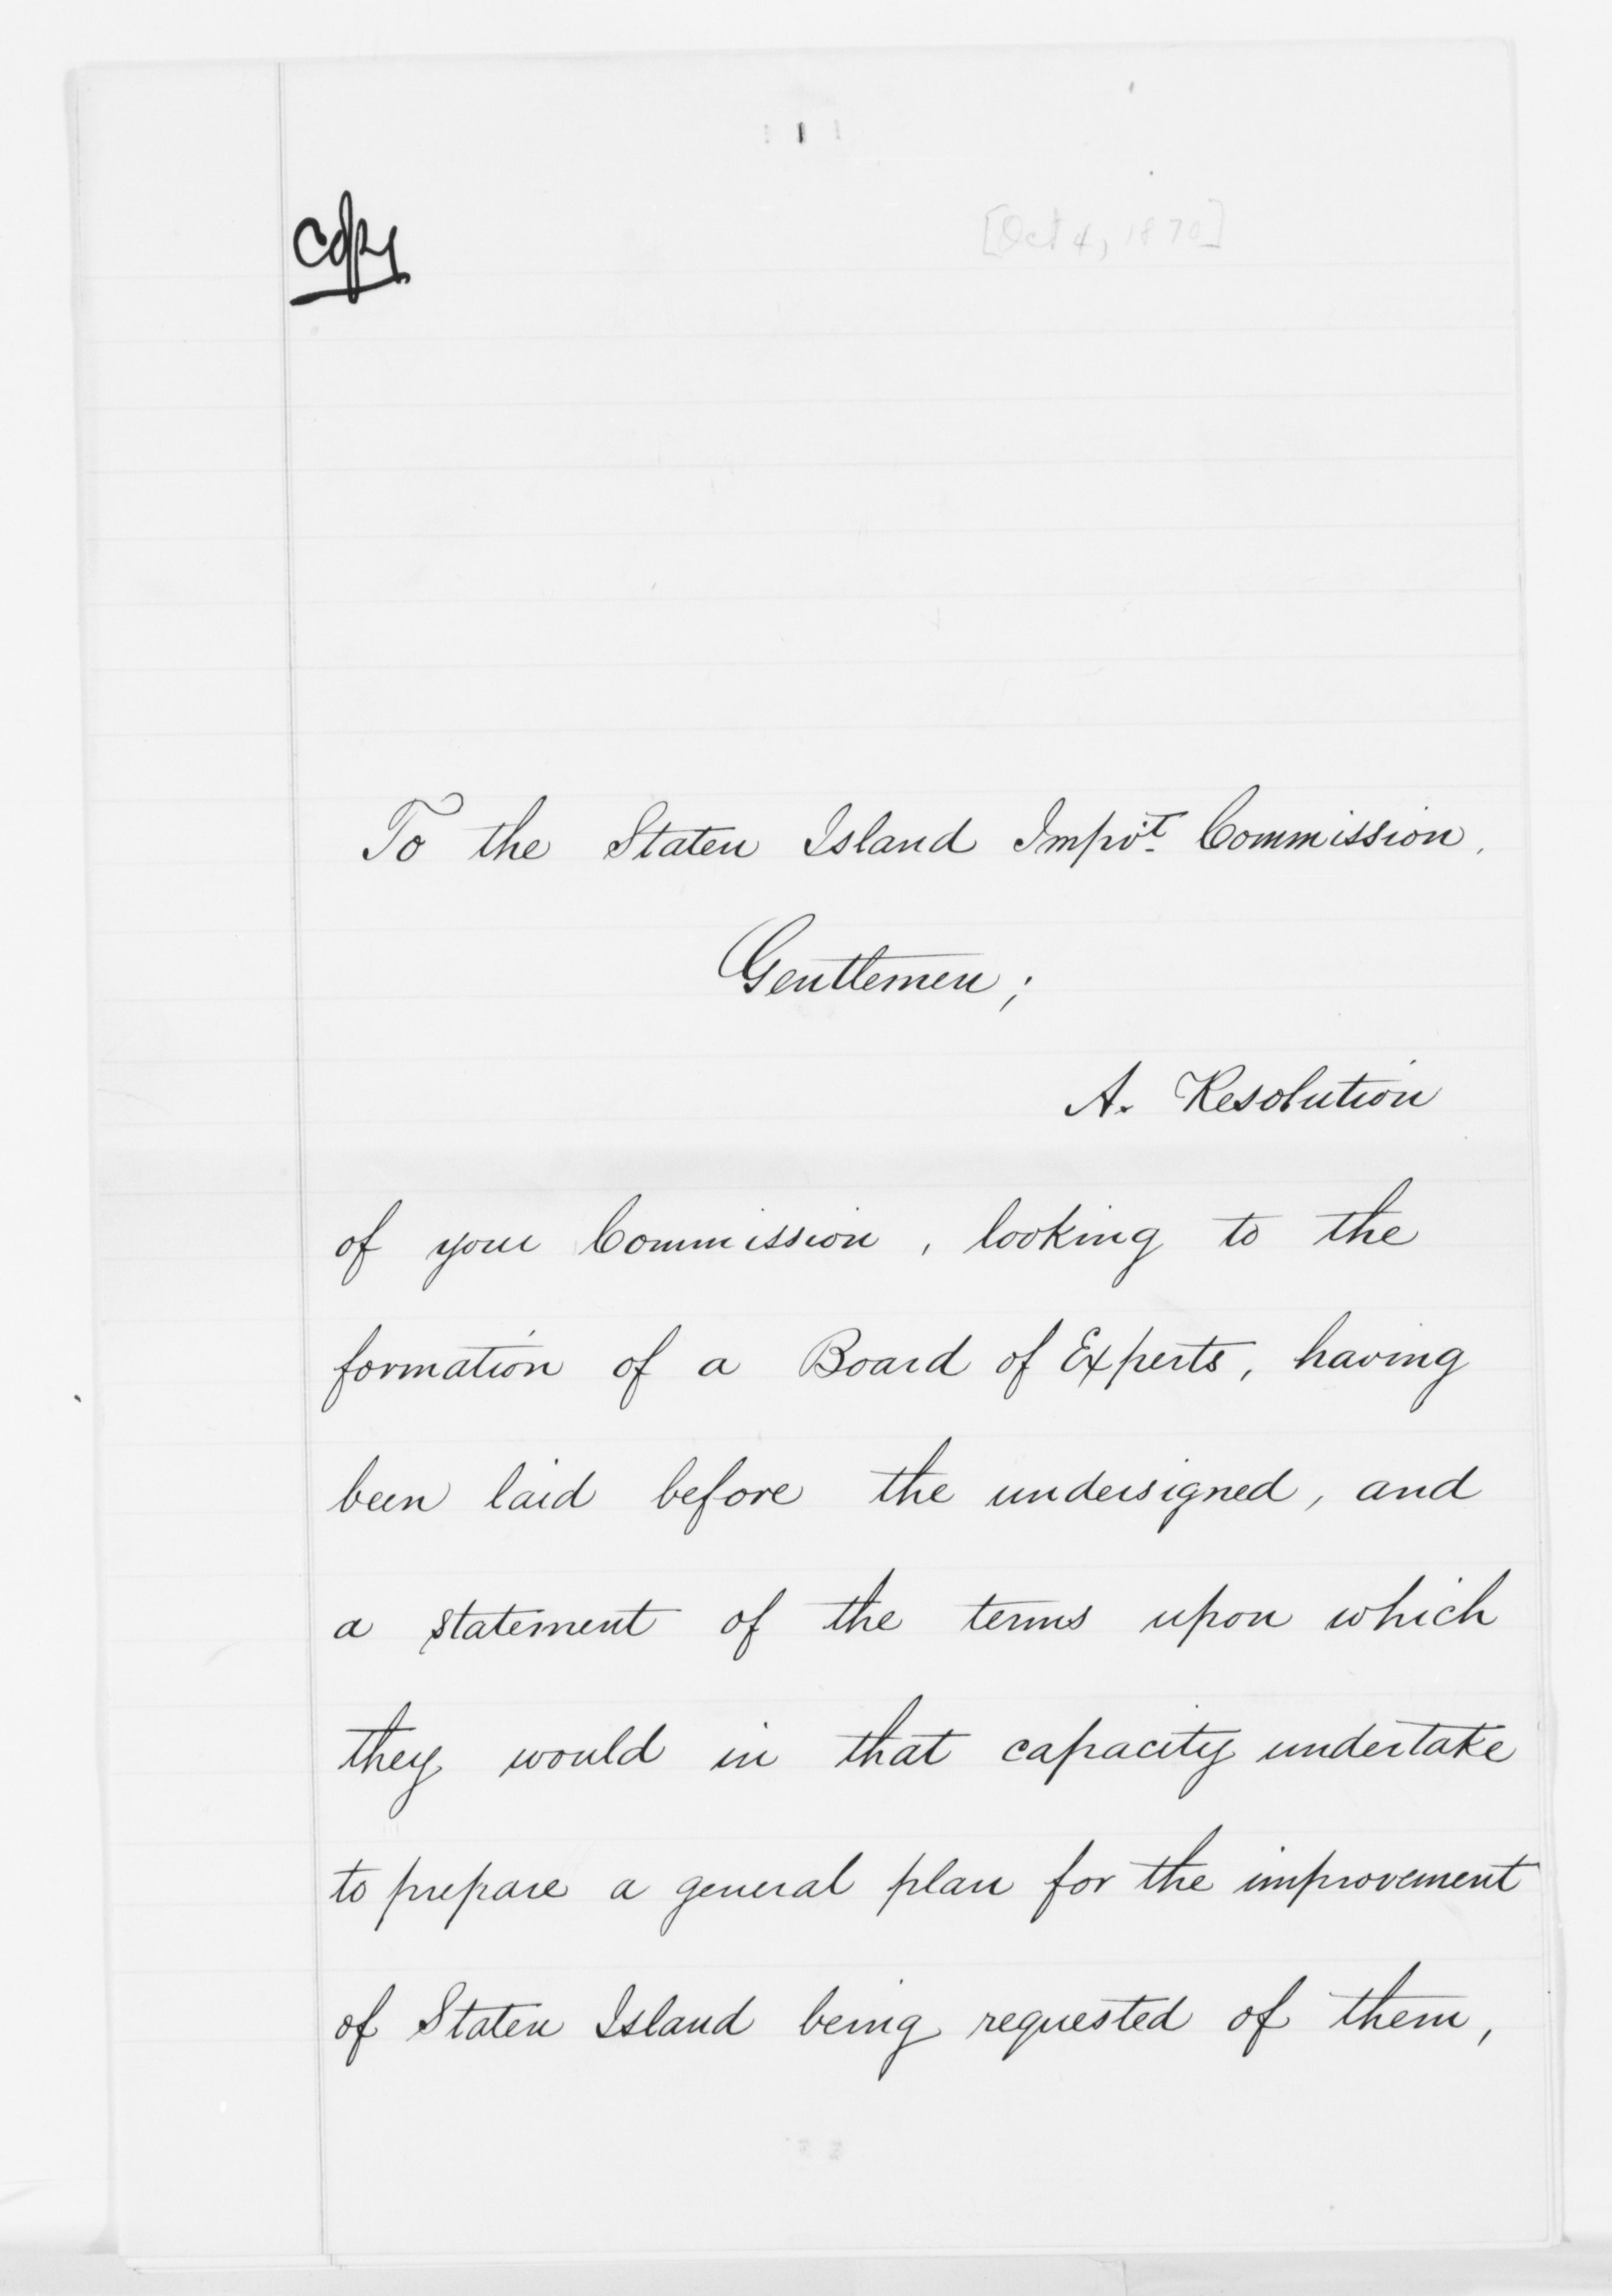 Copy
[Oct 4, 1870]
To the Staten Island Impv't. Commission.
Gentlemen;
A. Resolution
of your Commission, looking to the
formation of a Board of Experts, having
been laid before the undersigned, and
a statement of the terms upon which
they would in that capacity undertake
to prepare a general plan for the improvement
of Staten Island being requested of them,